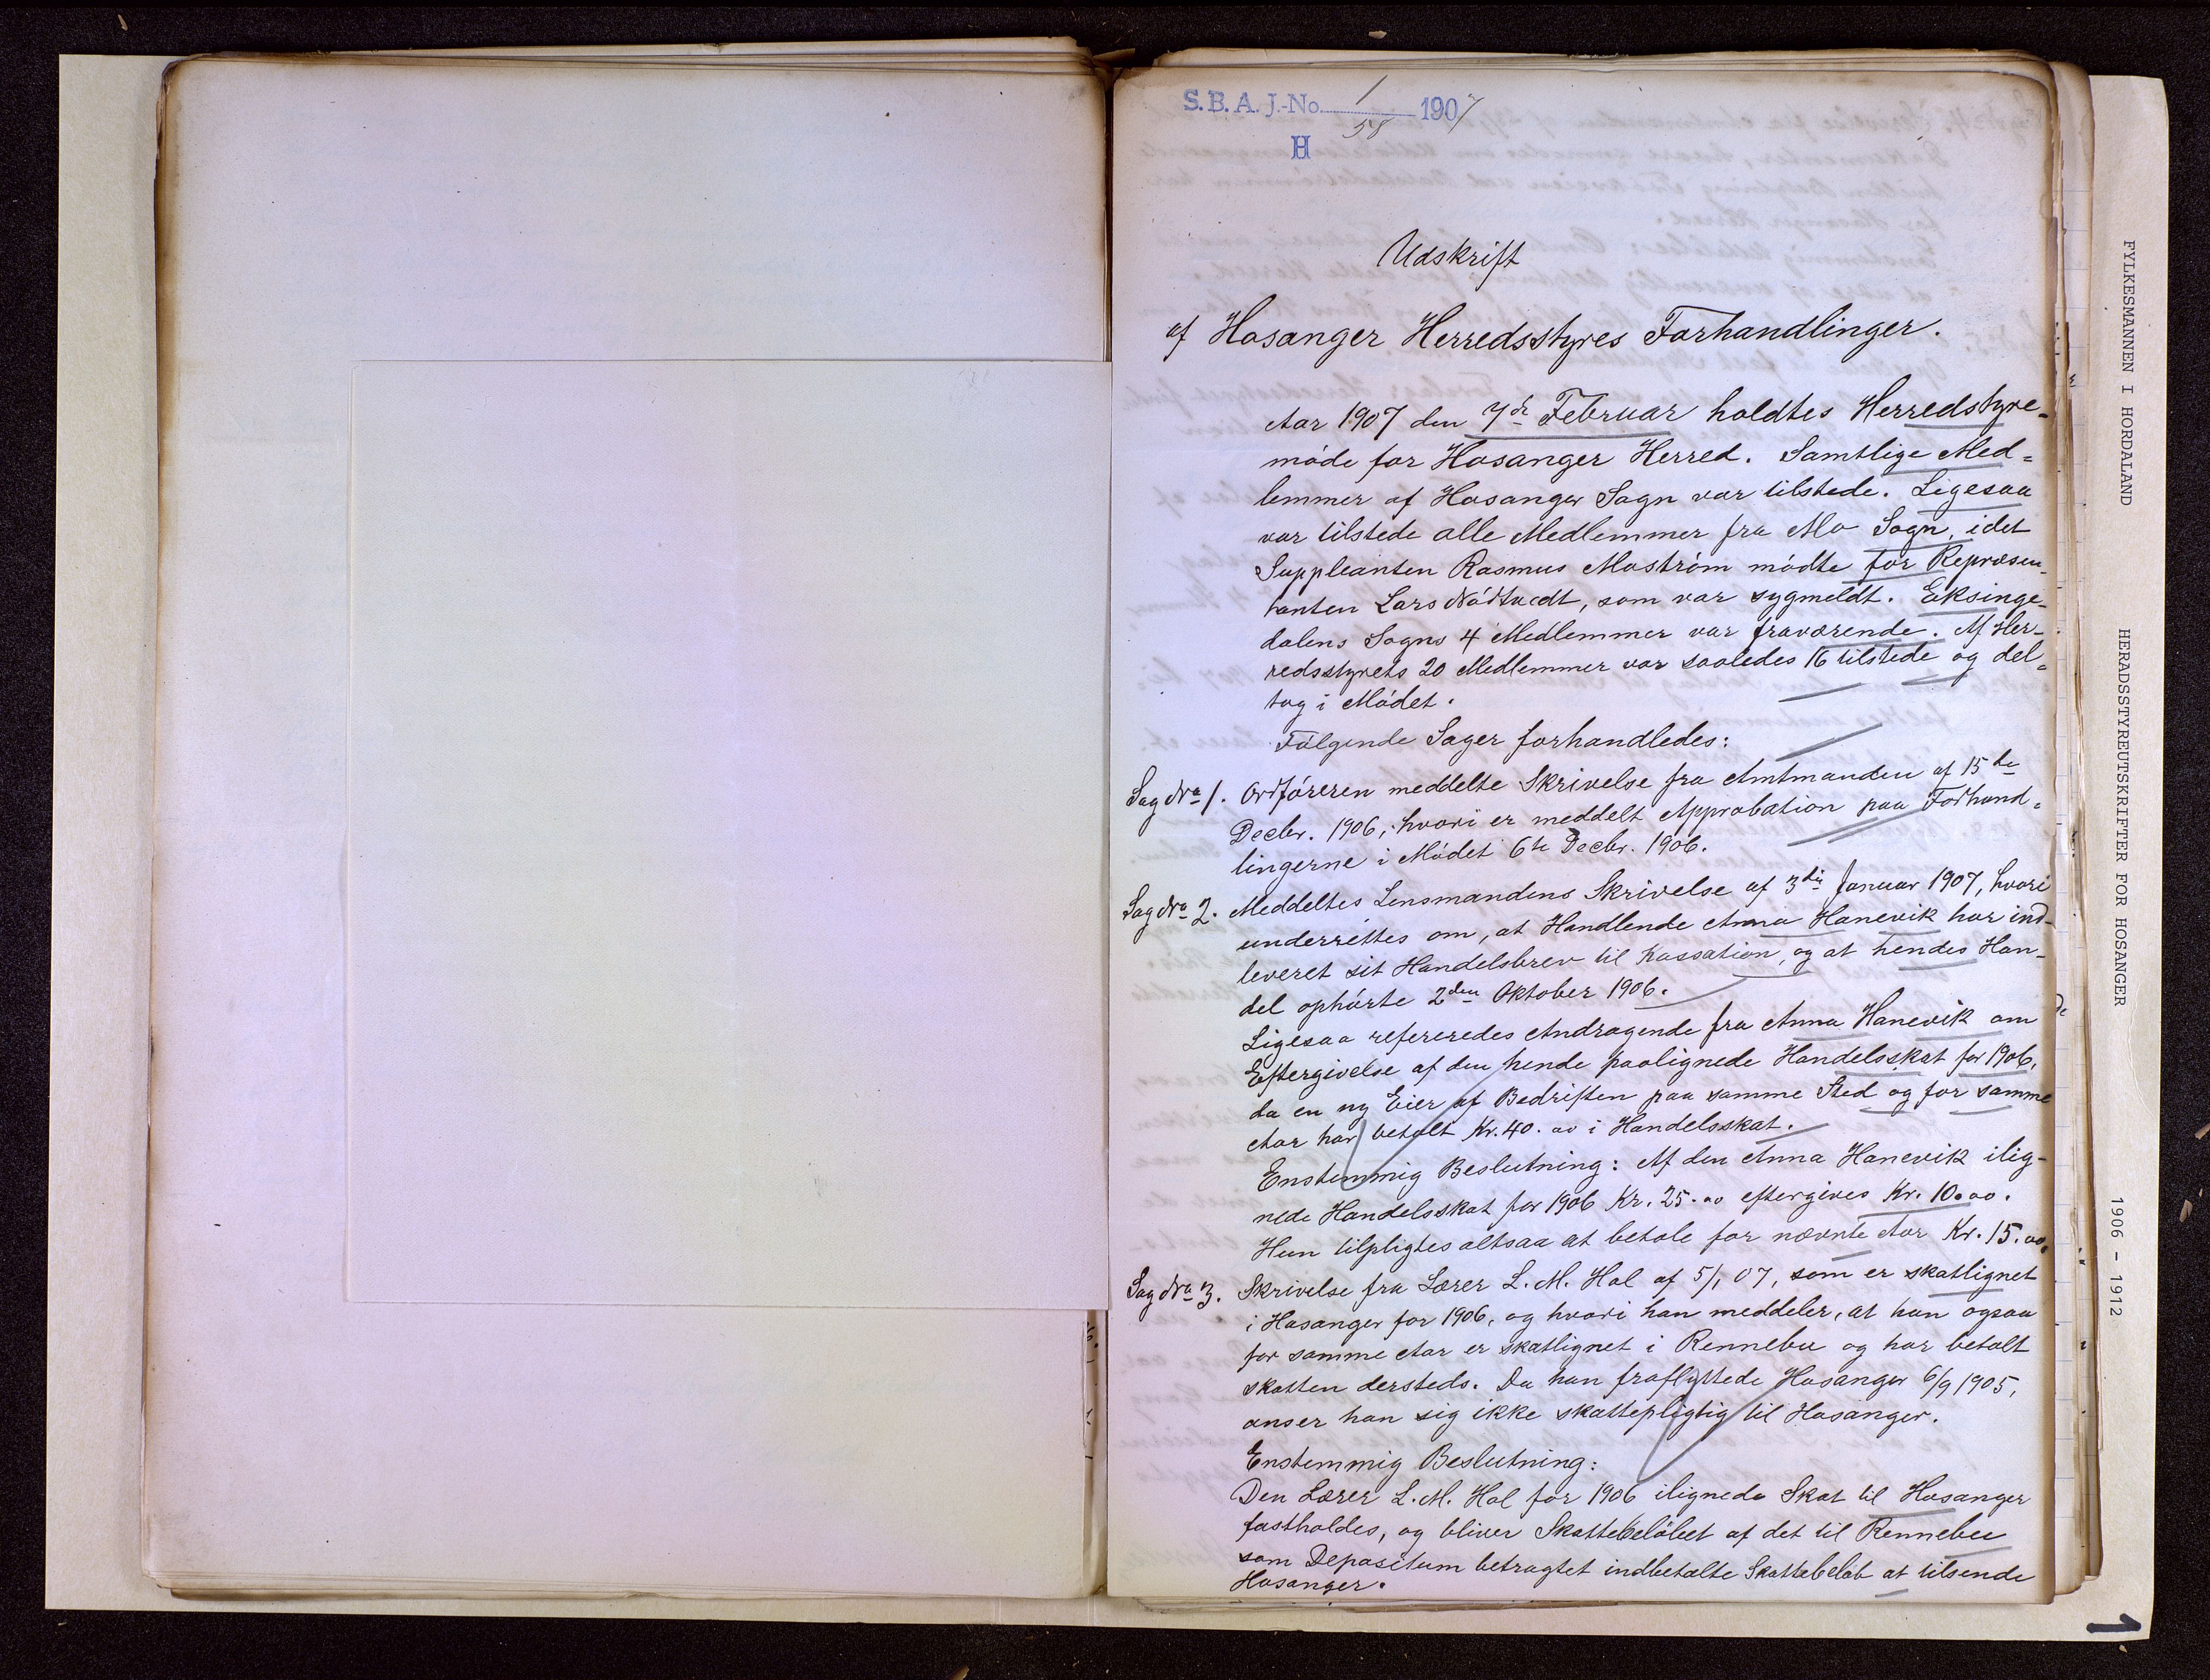 S.B.A. J.-No. 1 1907
58
H
Udskrift
af Hosanger Herredsstyres Forhandlinger.
Aar 1907 den 7de Februar holdtes Herredstyre-
møde for Hosanger Herred. Samtlige Med-
lemmer af Hosanger Sogn var tilstede. Ligesaa
var tilstede alle Medlemmer fra Mo Sogn, idet
Suppleanten Rasmus Mostrøm mødte for Repræsen-
tanten Lars Nødtvedt, som var sygmeldt. Eksinge-
dalens Sogns 4 Medlemmer var fraværende. Af Her-
redsstyrets 20 Medlemmer var saaledes 16 tilstede og del-
tog i Mødet.
Følgende Sager forhandledes:
Sag No 1. Ordføreren meddelte Skrivelse fra Amtmanden af 15de
Decbr. 1906, hvori er meddelt Approbation paa Forhand-
lingerne i Mødet 6te Decbr. 1906.
Sag No 2. Meddeltes Lensmandens Skrivelse af 3die Januar 1907, hvori
underrettes om, at Handlende Anna Hanevik har ind-
leveret sit Handelsbrev til Kassation, og at hendes Han-
del ophørte 2den Oktober 1906.
Ligesaa refereredes Andragende fra Anna Hanevik om
Eftergivelse af den hende paalignede Handelsskat for 1906,
da en ny Eier af Bedriften paa samme Sted og for samme
Aar har betalt Kr. 40.00 i Handelsskat.
Enstemmig Beslutning: Af den Anna Hanevik ilig-
nede Handelsskat for 1906 Kr. 25.00 eftergives Kr. 10.00.
Hun tilpligtes altsaa at betale for nævnte Aar Kr. 15.00.
Sag No 3. Skrivelse fra Lærer L. M. Hol af 5/1 07, som er skatlignet
i Hosanger for 1906, og hvori han meddeler, at han ogsaa
for samme Aar er skatlignet i Rennebu og har betalt
skatten dersteds. Da han fraflyttede Hosanger 6/9 1905,
anser han sig ikke skattepligtig til Hosanger.
Enstemmig Beslutning:
Den Lærer L. M. Hol for 1906 ilignede Skat til Hosanger
fastholdes, og bliver Skattebeløbet af det til Rennebu
som Depositum betragtet indbetalte Skattebeløb at tilsende
Hosanger.
FYLKESMANNEN I HORDALAND HERADSSTYREUTSKRIFTER FOR HOSANGER 1906 - 1912
1